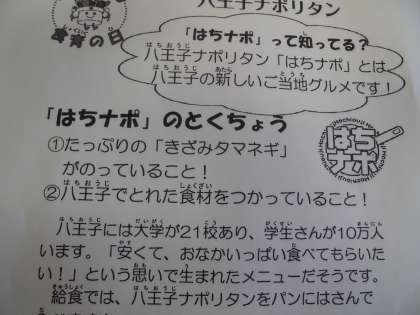 八王子ナポリタン
食育の日
「はちナポ」って知ってる？
八王子ナポリタン「はちナポ」とは
八王子の新しいご当地グルメです！
「はちナポ」のとくちょう
①たっぷりの「きざみタマネギ」
がのっていること！
②八王子でとれた食材をつかっていること！
はち
ナポ
八王子には大学が21校あり、学生さんが10万人
います。「安くて、おなかいっぱい食べてもらいた
い！」という思いで生まれたメニューだそうです。
給食では、八王子ナポリタンをパンにはさんで